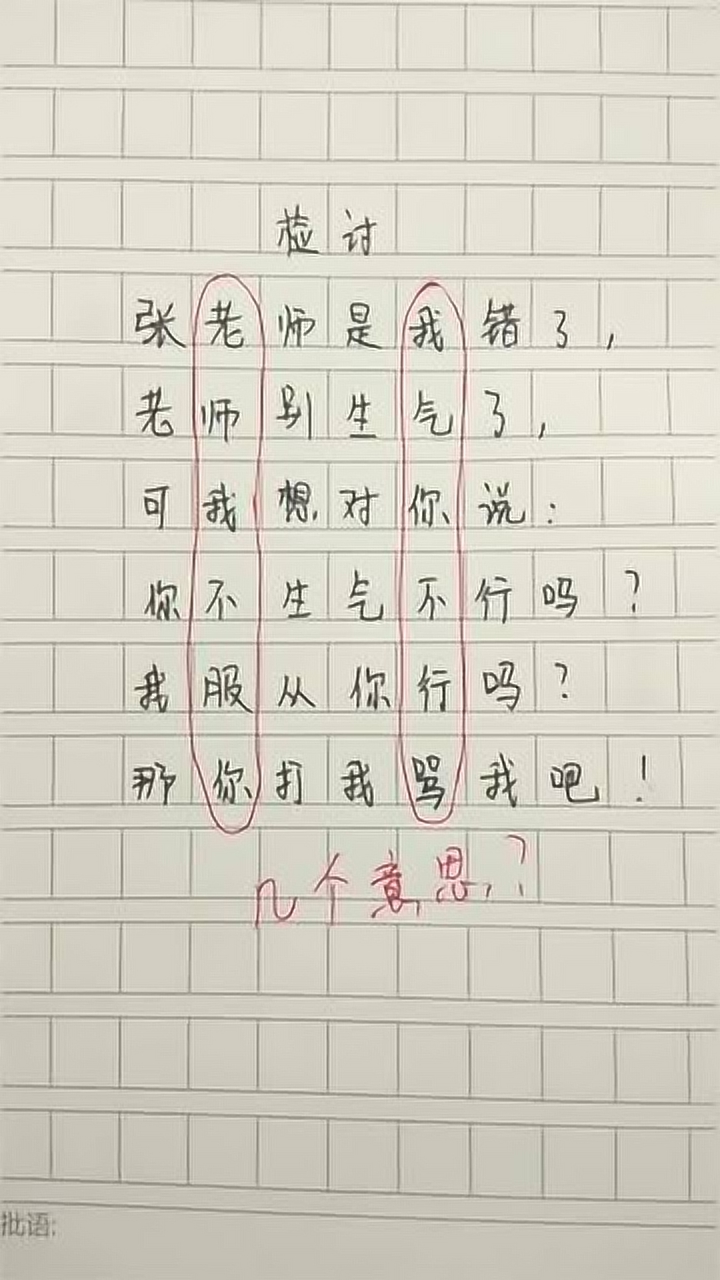 检讨
张老师是我错了,
老师别生气了,
可我想对你说:
你不生气不行吗?
我服从你行吗?
那你打我骂我吧!
几个意思?
批语: